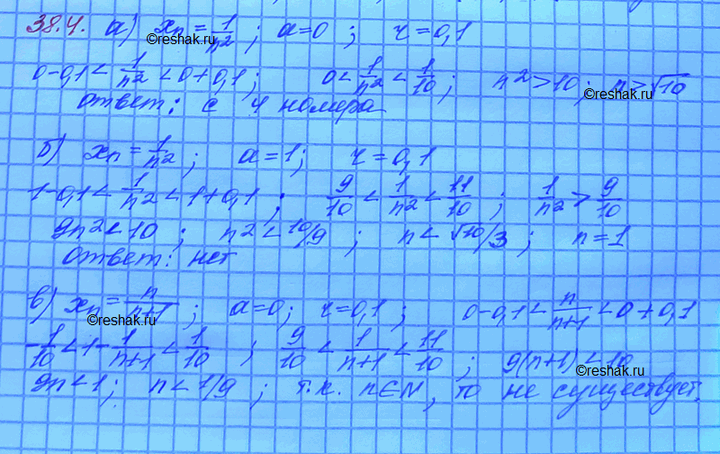 38.4. а) xₙ = 1/n² ; a=0 ; r=0,1
©reshak.ru
0-0,1 < 1/n² < 0+0,1 ; 0 < 1/n² < 1/10 ; n²>10 ; n>√10
©reshak.ru
ответ: с 4 номера
б) xₙ = 1/n² ; a=1 ; r=0,1
©reshak.ru
1-0,1 < 1/n² < 1+0,1 ; 9/10 < 1/n² < 11/10 ; 1/n² > 9/10
9n²<10 ; n²<10/9 ; n<√10/3 ; n=1
ответ: нет
в) xₙ = n/n+1 ; a=0; r=0,1 ; 0-0,1 < n/n+1 < 0+0,1
©reshak.ru
-1/10 < 1- 1/n+1 < 1/10 ; 9/10 < 1/n+1 < 11/10 ; 9(n+1)<10
©reshak.ru
9n<1; n<1/9 ; т.к. n∈N, то не существует.